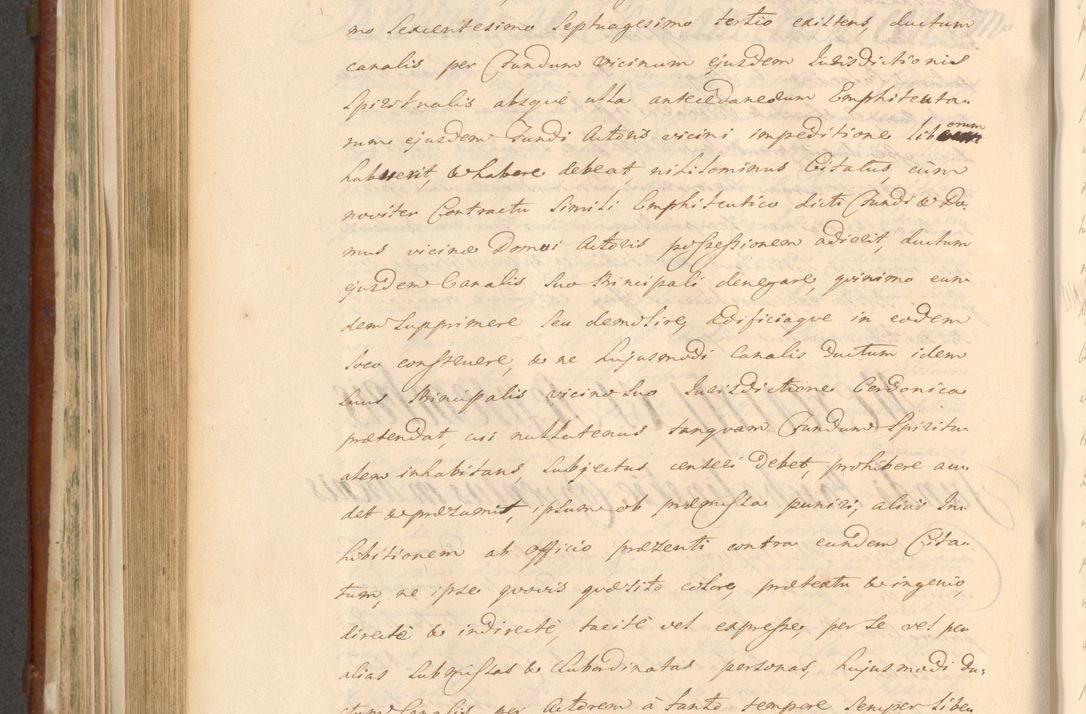 mo Sexcentesimo Septuagesimo tertio existens, ductum
canalis per Fundum vicinum ejusdem Jurisdictionis
Spiritualis absque ulla antecedaneorum Emphiteuta-
rum ejusdem Fundi Actoris vicini impeditione liberum
habuerit, & habere debeat, nihilominus Citatus, cùm
noviter Contractu simili Emphiteutico dicti Fundi & Do-
mus vicinæ Domui Actoris possessionem adierit, ductum
ejusdem Canalis suo Principali denegare, quinimo eun-
dem supprimere seu demolire, ædificiaque in eodem
loco construere, & ne hujusmodi Canalis ductum idem
suus Principalis vicino suo Jurisdictione Cerdonica
prætendat, cui nullatenus tanquam Fundum Spiritu-
alem inhabitans, subjectus censeri debet, prohibere au-
det & præsumit, ipsum ob præmissa puniri, alias In-
hibitionem ab officio præsenti contra eundem Cita-
tum, ne ipse quovis quæsito colore, prætextu & ingenio,
directè & indirectè, tacitè vel expresse, per se vel per
alias submissas & subordinatas personas, hujusmodi du-
ctum Canalis per Actorem à tanto tempore semper libere